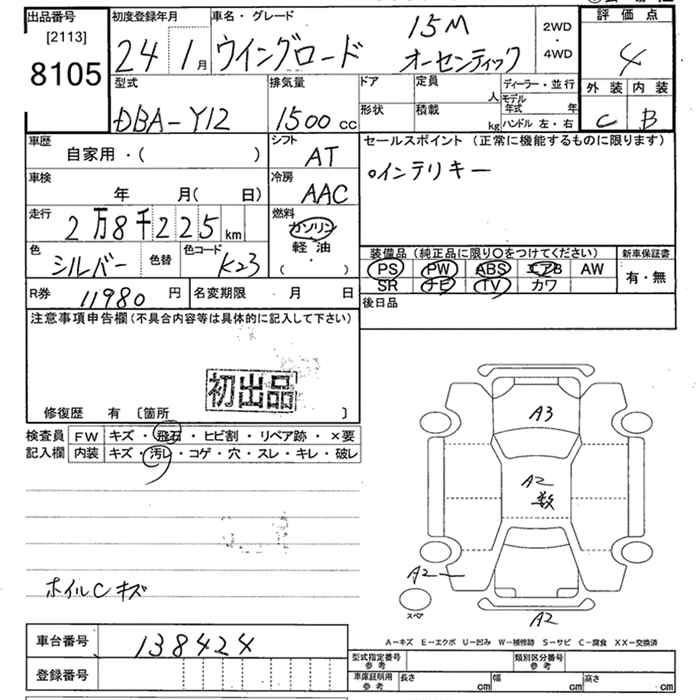 出品番号
[2113]
8105
初度登録年月
24 1月
車名・グレード
ウイングロード 15M
オーセンティック
2WD
・
4WD
評価点
4
外装 内装
C B
型式
DBA-Y12
排気量
1500cc
ドア
形状
定員
人
積載
kg
ディーラー・並行
モデル年式 年
ハンドル 左・右
車歴
自家用・( )
シフト
AT
車検
年 月( 日)
冷房
AAC
走行
2万8千225km
燃料
ガソリン
軽油
( ・ )
色
シルバー
色替
色コード
K23
R券
11980円
名変期限 月 日
セールスポイント(正常に機能するものに限ります)
○インテリキー
装備品(純正品に限り○をつけてください)
PS PW ABS エアB AW
SR ナビ TV カワ
新車保証書
有・無
後日品
注意事項申告欄(不具合内容等は具体的に記入して下さい)
初出品
修復歴 有 〔箇所 〕
検査員
記入欄
FW キズ・飛石・ヒビ割・リペア跡・×要
内装 キズ・汚レ・コゲ・穴・スレ・キレ・破レ
A3
A2
数
A2
スペア
A2
ホイルCキズ
A-キズ E-エクボ U-凹み W-補修跡 S-サビ C-腐食 XX-交換済
車台番号
138424
登録番号
型式指定番号
参考
類別区分番号
参考
車庫証明用
参考
長さ cm
幅 cm
高さ cm